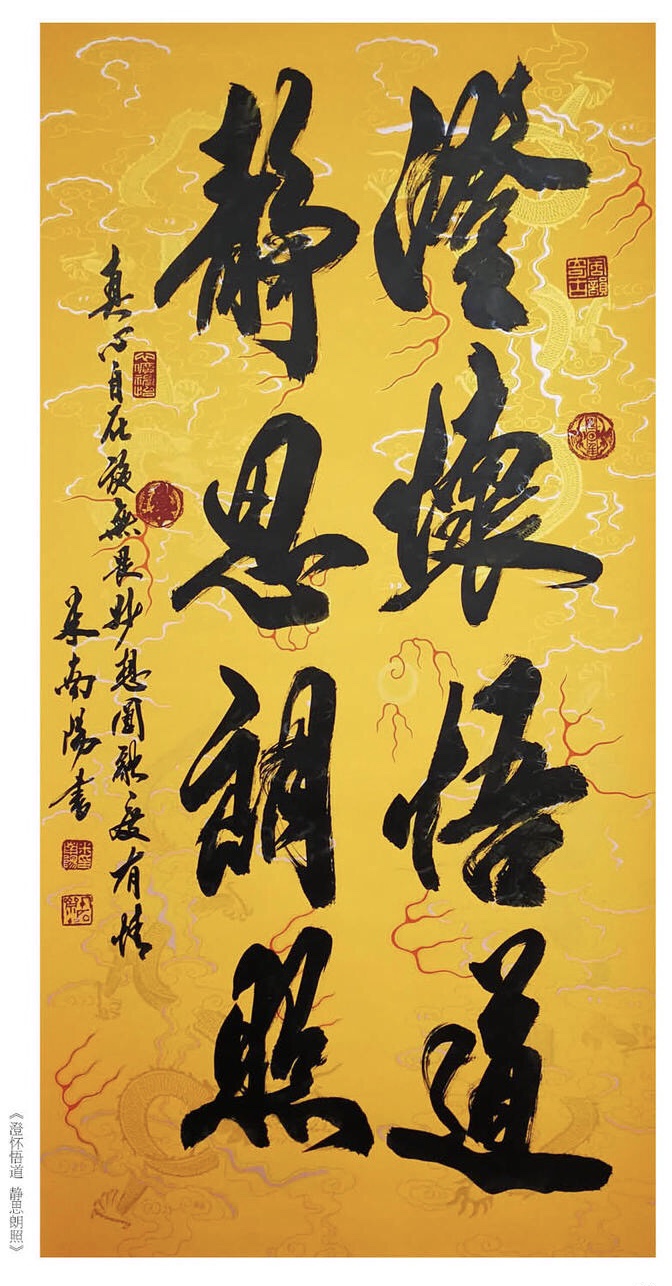 澄懷悟道
靜思朗照
真心自在施無畏妙想圓融有情
米南陽書
《澄怀悟道 静思朗照》